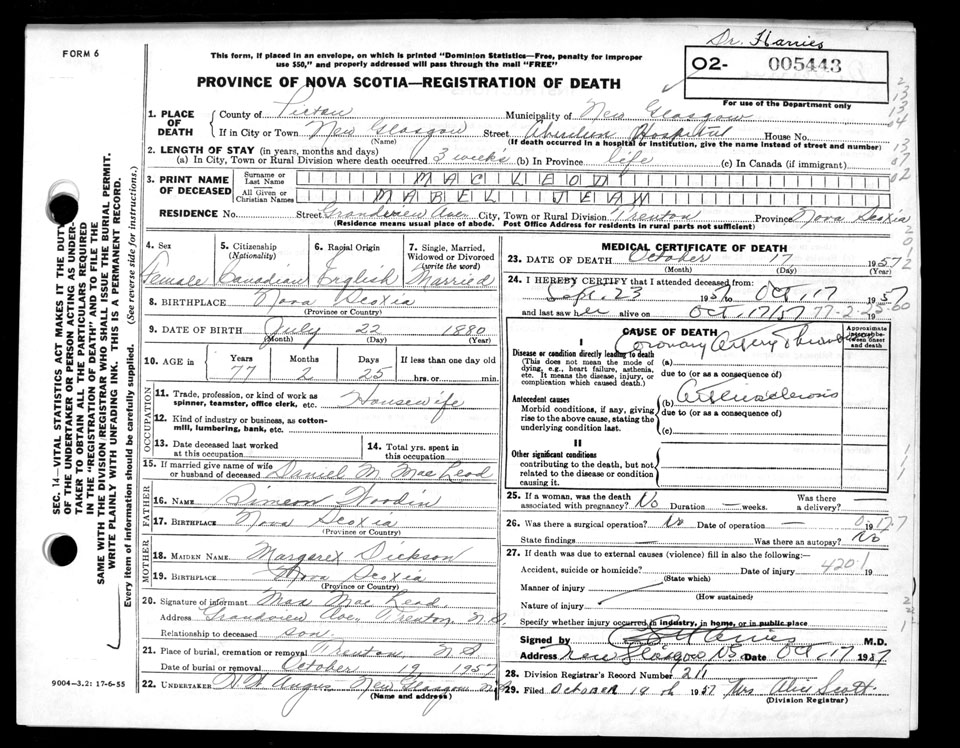 FORM 6
This form, if placed in an envelope, on which is printed "Dominion Statistics—Free, penalty for improper
use $50," and properly addressed will pass through the mail "FREE"
Dr. Harries
02- 005443
For use of the Department only
PROVINCE OF NOVA SCOTIA—REGISTRATION OF DEATH
1. PLACE OF DEATH
County of Pictou Municipality of New Glasgow
If in City or Town New Glasgow Street Aberdeen Hospital House No.
(Name) (If death occurred in a hospital or institution, give the name instead of street and number)
2. LENGTH OF STAY (in years, months and days)
(a) In City, Town or Rural Division where death occurred 3 weeks (b) In Province life (c) In Canada (if immigrant)
3. PRINT NAME OF DECEASED
Surname or Last Name MAC LEOD
All Given or Christian Names MABEL JEAN
RESIDENCE No. Street Grandview Ave City, Town or Rural Division Trenton Province Nova Scotia
(Residence means usual place of abode. Post Office Address for residents in rural parts not sufficient)
4. Sex Female
5. Citizenship (Nationality) Canadian
6. Racial Origin English
7. Single, Married, Widowed or Divorced (write the word) Married
8. BIRTHPLACE Nova Scotia
(Province or Country)
9. DATE OF BIRTH July 22 1880
(Month) (Day) (Year)
10. AGE in Years Months Days If less than one day old
77 2 25 hrs. or min.
OCCUPATION
11. Trade, profession, or kind of work as spinner, teamster, office clerk, etc. Housewife
12. Kind of industry or business, as cotton-mill, lumbering, bank, etc.
13. Date deceased last worked at this occupation
14. Total yrs. spent in this occupation
15. If married give name of wife or husband of deceased Daniel M. MacLeod
FATHER
16. NAME Simeon
17. BIRTHPLACE Nova Scotia
(Province or Country)
MOTHER
18. MAIDEN NAME Margaret Dickson
19. BIRTHPLACE Nova Scotia
(Province or Country)
20. Signature of informant MacLeod
Address Grandview Ave, Trenton, N.S.
Relationship to deceased son
21. Place of burial, cremation or removal Trenton, N.S
Date of burial or removal October 19 1957
22. UNDERTAKER Angus New Glasgow N.S
(Name and address)
MEDICAL CERTIFICATE OF DEATH
23. DATE OF DEATH October 17 1957
(Month) (Day) (Year)
24. I HEREBY CERTIFY that I attended deceased from:
Sept. 23 1957 to Oct. 17 1957
and last saw her alive on Oct. 17/57 77-2-25-60
CAUSE OF DEATH
Approximate interval between onset and death
I
Disease or condition directly leading to death
(This does not mean the mode of dying, e.g., heart failure, asthenia, etc. It means the disease, injury, or complication which caused death.)
(a) Coronary Artery Thrombosis
due to (or as a consequence of)
Antecedent causes
Morbid conditions, if any, giving rise to the above cause, stating the underlying condition last.
(b) Arteriosclerosis
due to (or as a consequence of)
(c)
II
Other significant conditions
contributing to the death, but not related to the disease or condition causing it.
25. If a woman, was the death associated with pregnancy? No Duration — weeks. Was there a delivery? —
26. Was there a surgical operation? No Date of operation — 19
State findings — Was there an autopsy? No
27. If death was due to external causes (violence) fill in also the following:—
Accident, suicide or homicide? Date of injury 4201 19
(State which)
Manner of injury
(How sustained)
Nature of injury
Specify whether injury occurred in industry, in home, or in public place
Signed by Harries M.D.
Address New Glasgow NS Date Oct. 17 1957
28. Division Registrar's Record Number 211
29. Filed October 19th 1957 Mrs Alice Scott
(Division Registrar)
SEC. 14—VITAL STATISTICS ACT MAKES IT THE DUTY
OF THE UNDERTAKER OR PERSON ACTING AS UNDERTAKER TO OBTAIN ALL THE PARTICULARS REQUIRED
IN THE "REGISTRATION OF DEATH" AND TO FILE THE
SAME WITH THE DIVISION REGISTRAR WHO SHALL ISSUE THE BURIAL PERMIT.
WRITE PLAINLY WITH UNFADING INK. THIS IS A PERMANENT RECORD.
Every item of information should be carefully supplied. (See reverse side for instructions.)
9004-3.2: 17-6-55